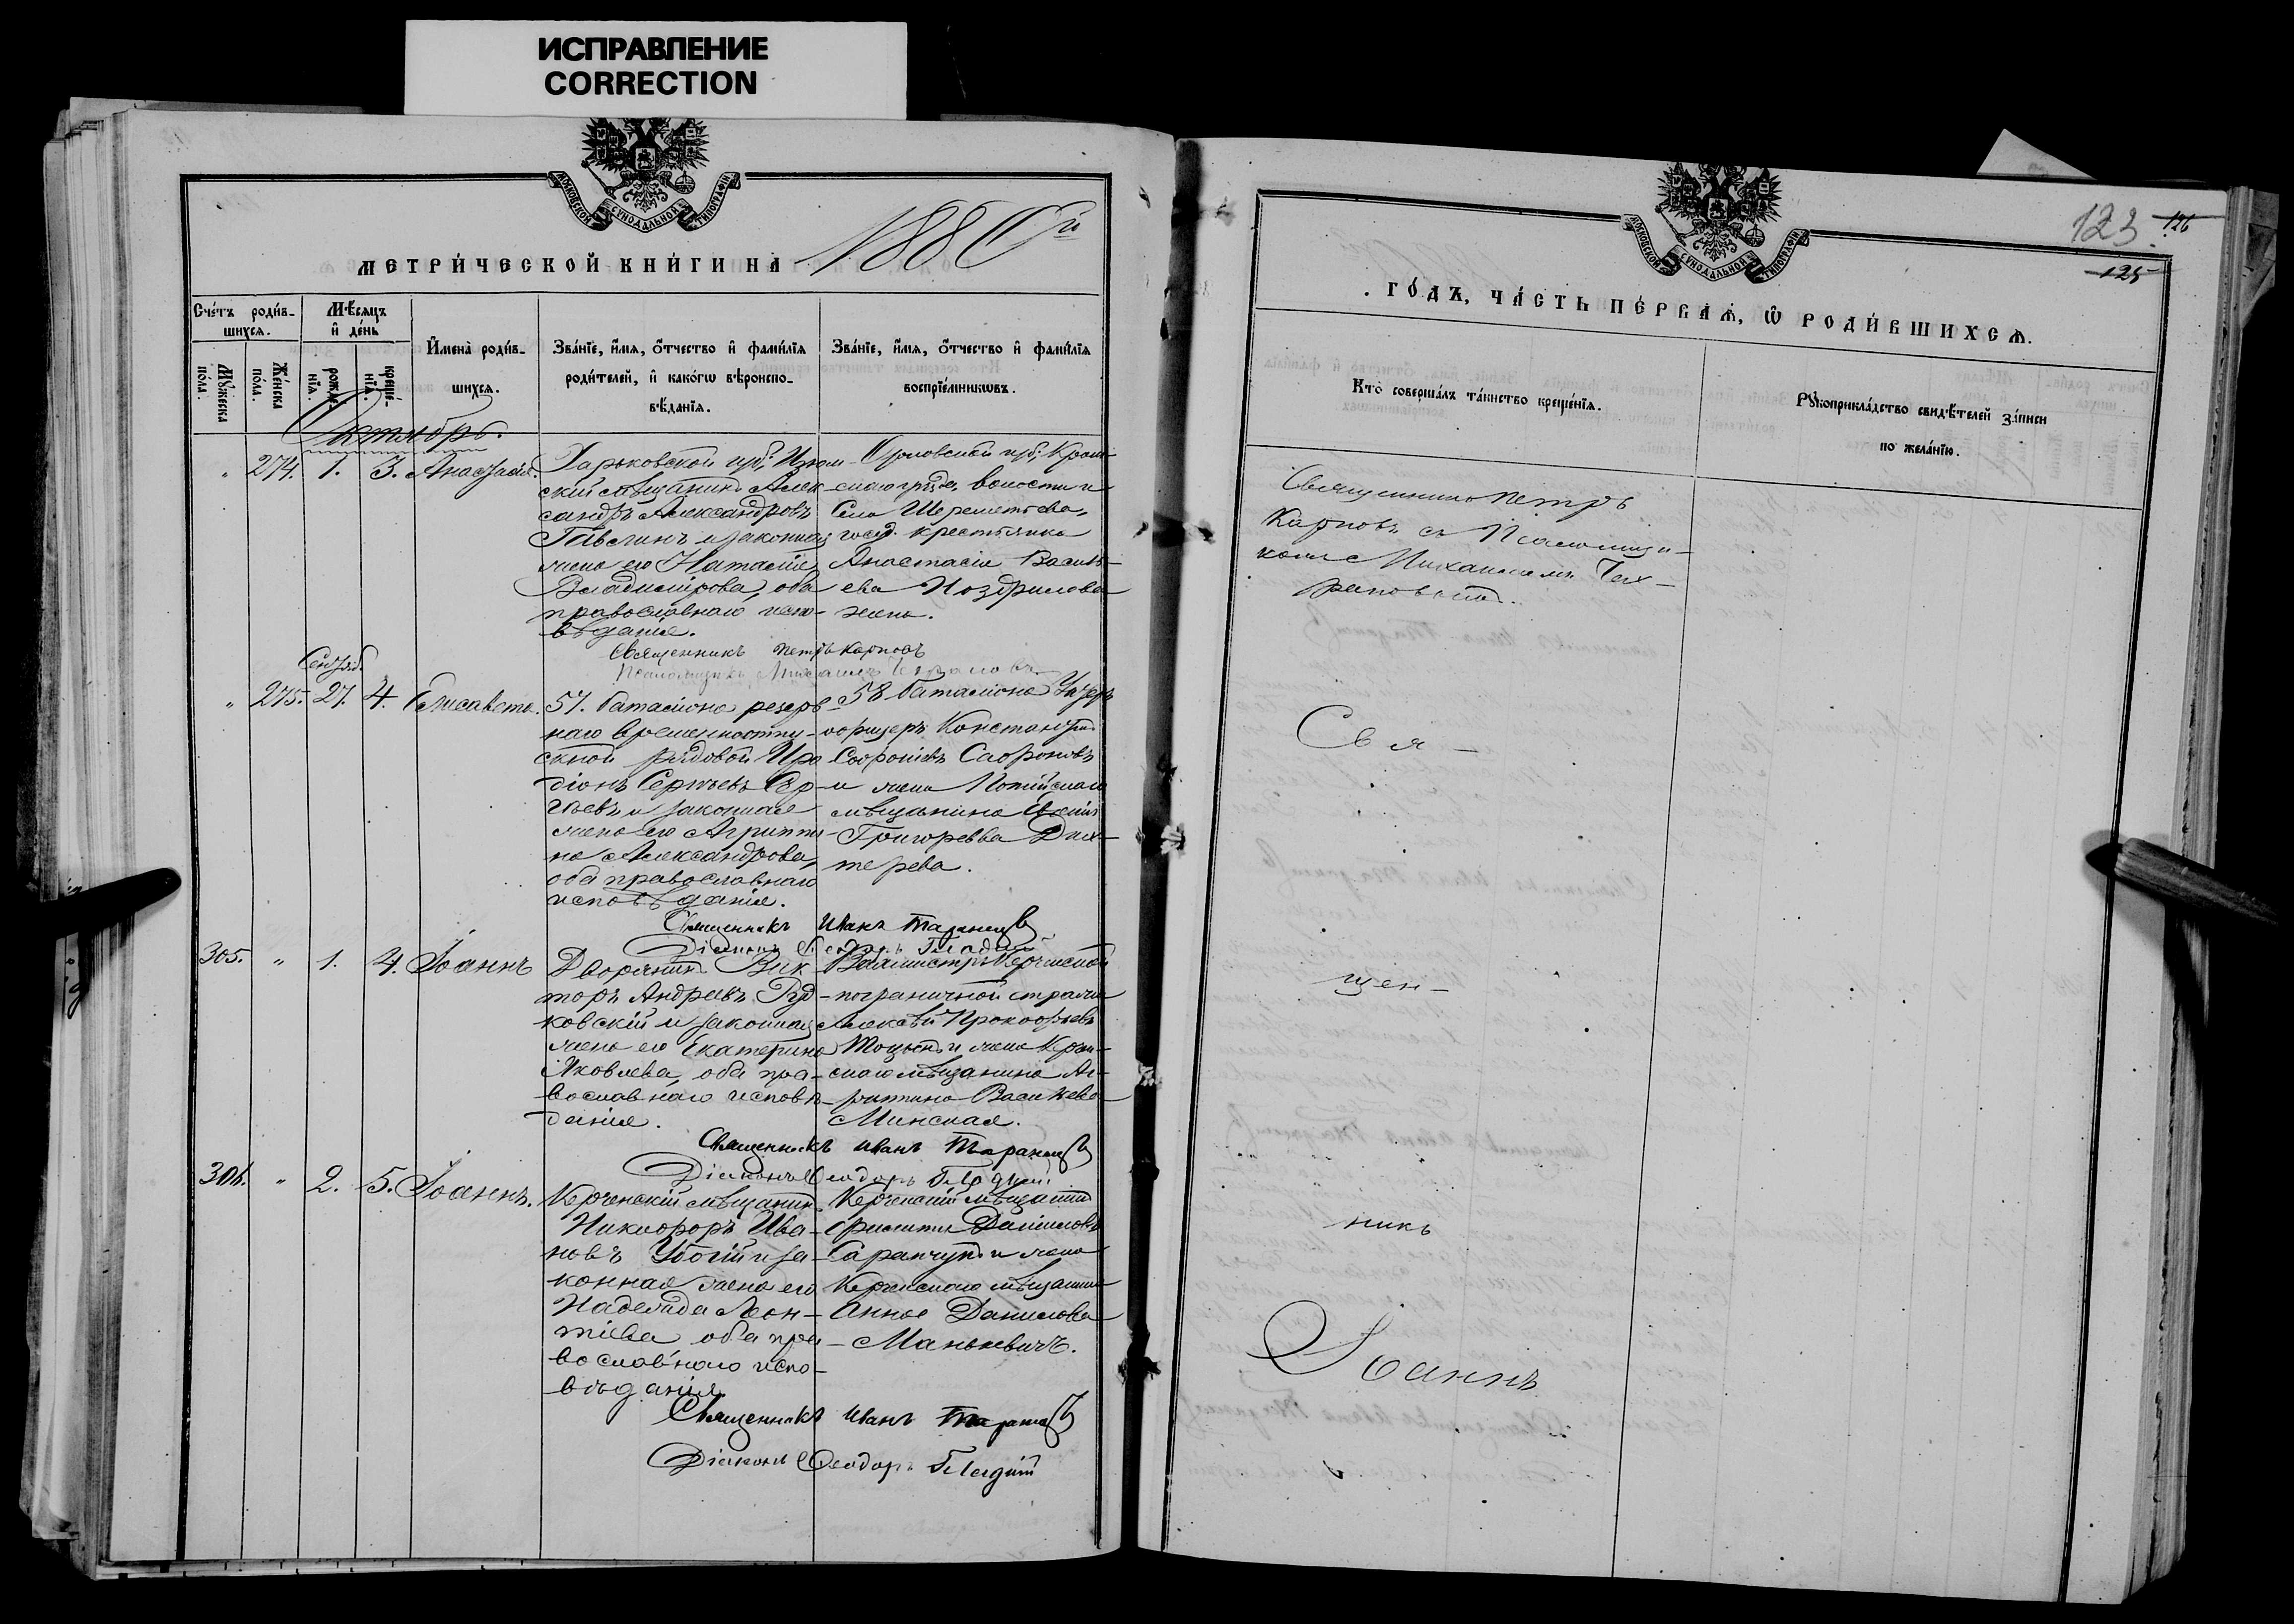 ИСПРАВЛЕНИЕ
CORRECTION
МОСКОВСКОЙ СѴНОДАЛЬНОЙ ТИПОГРАФІИ
МЕТРИ́ЧЕСКОЙ КНИ́ГИ НА 1880й
Сче́тъ роди́в-
шихсѧ.
Мꙋ́жеска по́ла.
Же́нска по́ла.
Мѣ́сѧцъ и҆ де́нь
рожде́нїѧ.
креще́нїѧ.
И҆мена̀ роди́в-
шихсѧ.
Зва́нїе, и҆́мѧ, ѻ҆́тчество и҆ фамі́лїѧ
роди́телей, и҆ како́гѡ вѣроиспо-
вѣ́данїѧ.
Зва́нїе, и҆́мѧ, ѻ҆́тчество и҆ фамі́лїѧ
воспрїе́мникѡвъ.
Октябрь.
" 274. 1. 3. Анастасія.
Харьковской губ. Изюм-
скій мѣщанинъ Алек-
сандръ Александровъ
и законная
жена его Наталія
Владимірова, оба
православнаго испо-
вѣданія.
Орловской губ. Кром-
скаго уѣзда, волости и
села Шереметева,
госуд. крестьянка
Анастасія Василь-
ева Ноздрилова
жена.
Священникъ Петръ Карповъ
Псаломщикъ Михаилъ
Сентяб.
" 275. 27. 4. Елисавета.
57. баталіона резерв-
наго
рядовой Иро-
діонъ Сергѣевъ Сер-
гѣевъ и законная
жена его Агриппи-
на Александрова,
оба православнаго
исповѣданія.
58 баталіона Унтеръ
офицеръ Константинъ
Софроніевъ Сафроновъ
и жена
мѣщанина
Григорьева Дих-
терева.
Священникъ Иванъ Таранецъ
Діаконъ Ѳеодоръ Гладкій
305. " 1. 4. Іоаннъ
Дворянинъ Вик-
торъ Андреевъ Руд-
ковскій и законная
жена его Екатерина
Яковлева, оба пра-
вославнаго исповѣ-
данія.
Вахмистръ Керченской
пограничной стражи
Алексѣй Прокофьевъ
и жена Керчен-
скаго мѣщанина Аг-
рипина Васильева
Минская.
Священникъ Иванъ Таранецъ
Діаконъ Ѳеодоръ Гладкій
306. " 2. 5. Іоаннъ.
Керченскій мѣщанинъ
Никифоръ Ива-
новъ Убогій и за-
конная жена его
Надежда Леон-
тіева, оба пра-
вославнаго испо-
вѣданія
Керченскій мѣщанинъ
Филиппъ Даниловъ
Саранчукъ и жена
Керченскаго мѣщанина
Анна Данилова
Манькевичъ.
Священникъ Иванъ Таранецъ
Діаконъ Ѳеодоръ Гладкій
МОСКОВСКОЙ СѴНОДАЛЬНОЙ ТИПОГРАФІИ
123. 126
125
ГО́ДЪ, ЧА́СТЬ ПЕ́РВАѦ, Ѽ РОДИ́ВШИХСѦ.
Кто̀ соверша́лъ та́инство креще́нїѧ.
Рꙋкоприкла́дство свидѣ́телей за́писи
по жела́нїю.
Священникъ Петръ
Карповъ съ Псаломщи-
комъ Михаиломъ
Свя-
щен-
никъ
Іоаннъ